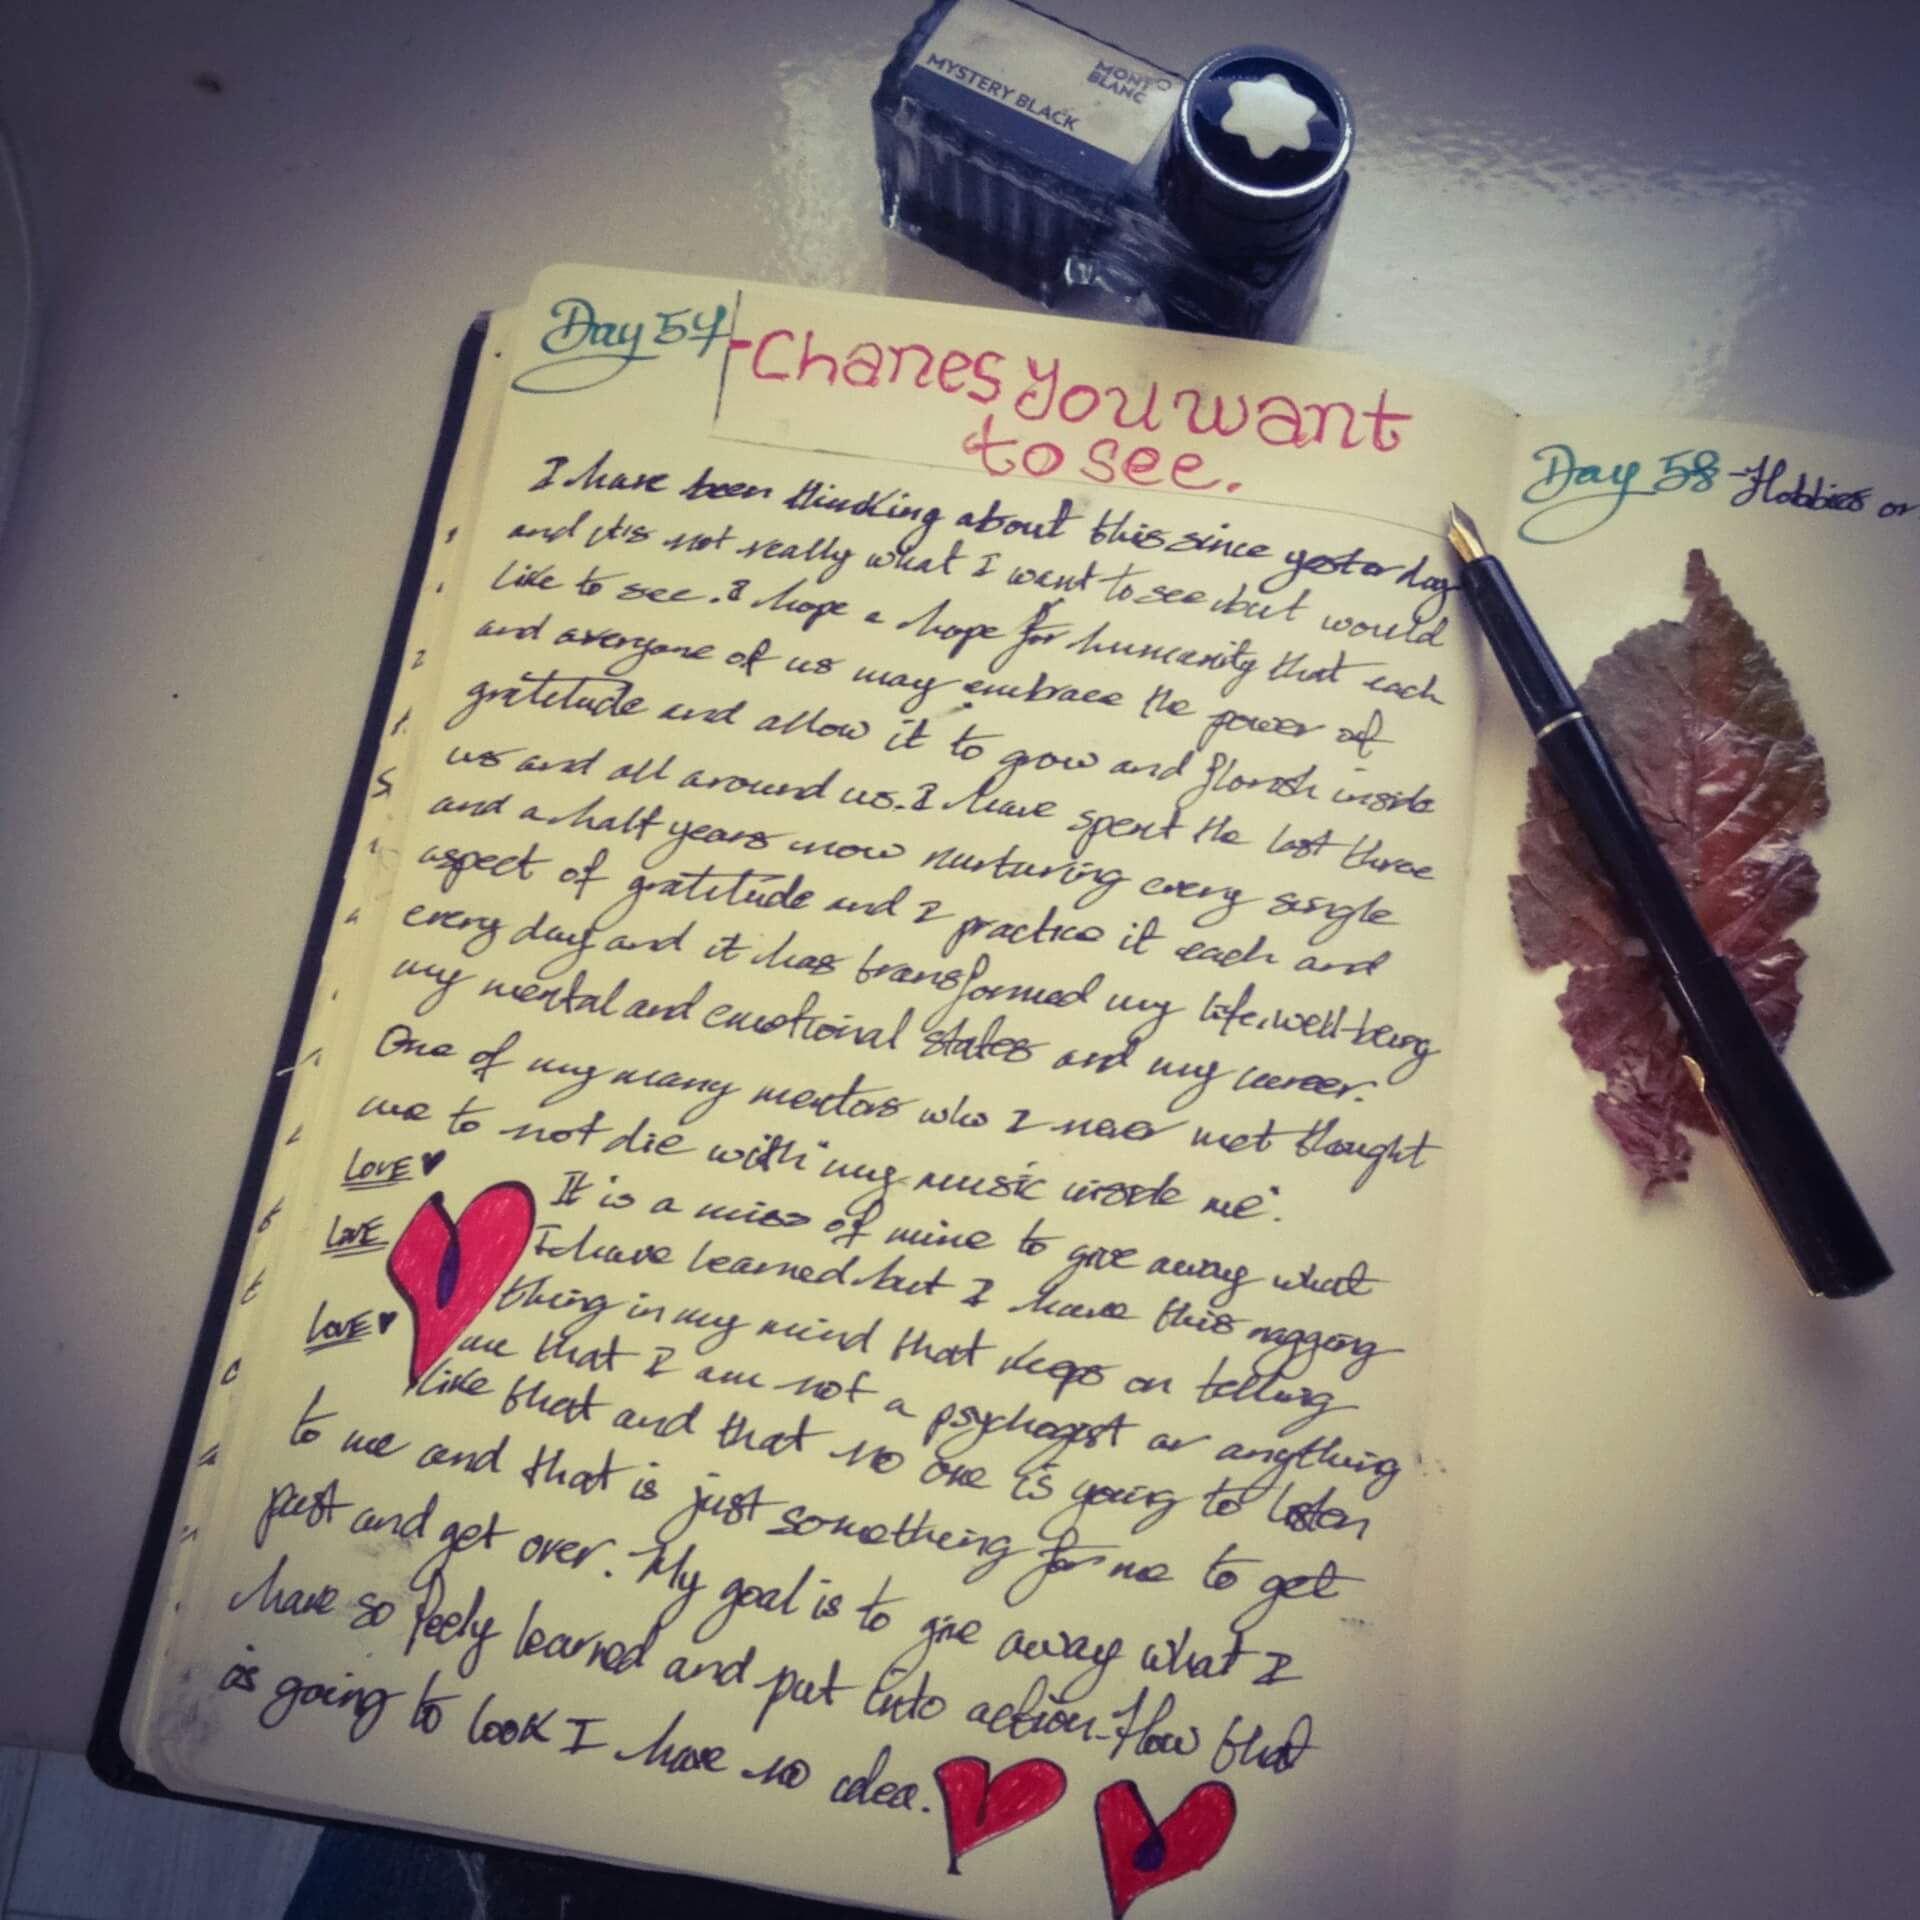 MONT
BLANC
MYSTERY BLACK
Day 57
-Chanes You want
to see.
I have been thinking about this since yesterday
and it's not really what I want to see but would
like to see. I hope a hope for humanity that each
and everyone of us may embrace the power of
gratitude and allow it to grow and florish inside
us and all around us. I have spent the last three
and a half years now nurturing every single
aspect of gratitude and I practice it each and
every day and it has transformed my life, well-being
my mental and emotional states and my career.
One of my many mentors who I never met thought
me to not die with "my music inside me".
LOVE
It is a miss of mine to give away what
LOVE
I have learned but I have this nagging
thing in my mind that keeps on telling
LOVE
me that I am not a psychogist or anything
like that and that no one is going to listen
to me and that is just something for me to get
past and get over. My goal is to give away what I
have so feely learned and put into action. How that
is going to look I have no idea.
Day 58 - Hobbies or